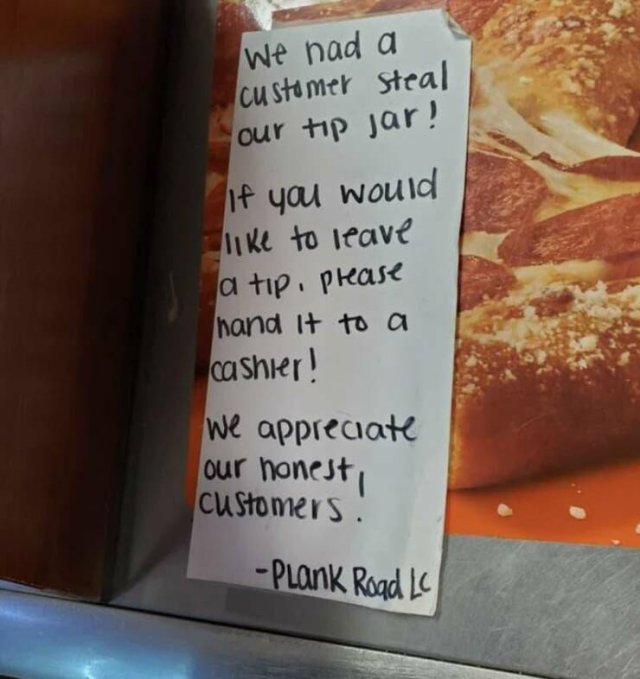 We had a
customer steal
our tip jar!
If you would
like to leave
a tip, please
hand it to a
cashier!
We appreciate
our honest
customers!
-Plank Road LC